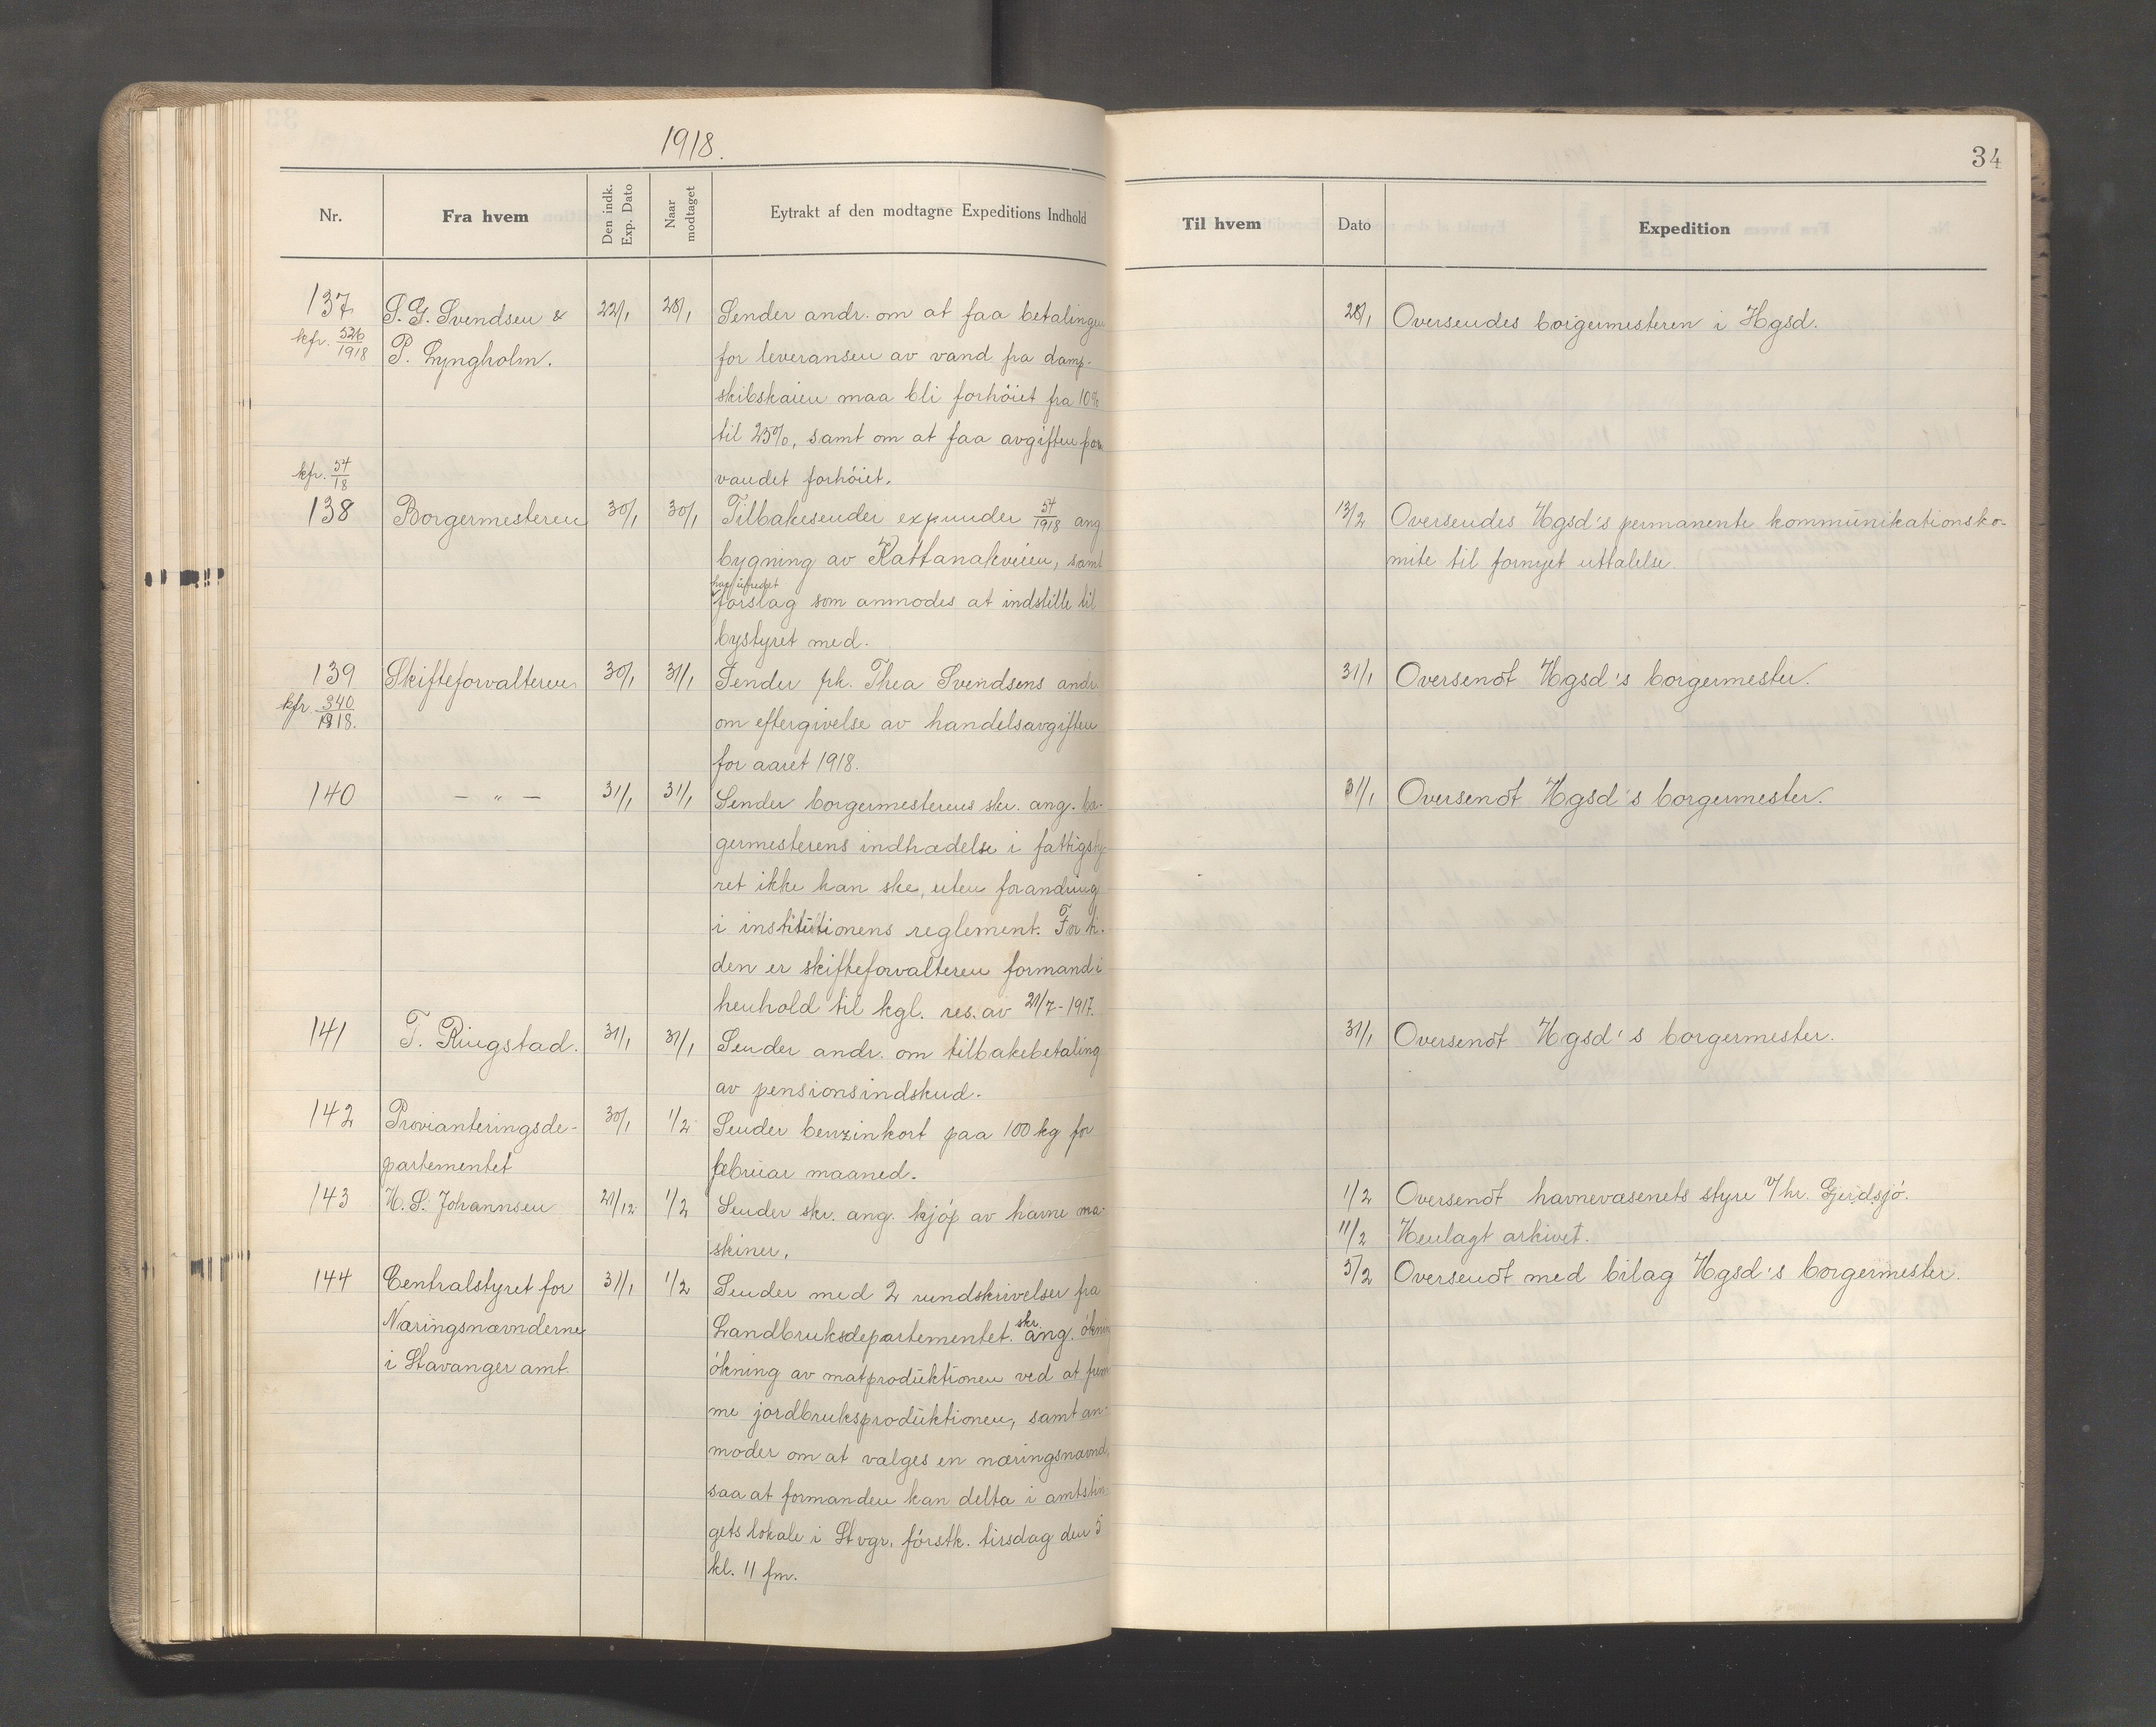 1918.
Nr. Fra hvem Den indk. Exp. Dato Naar modtaget Eytrakt af den modtagne Expeditions Indhold
137 S. G. Svendsen & 22/1 28/1 Sender andr. om at faa betalingen
kfr. 526/1918 P. Lyngholm. for leveransen av vand fra damp-
skibskaien maa bli forhöiet fra 10%
til 25%, samt om at faa avgiften for
kfr. 54/18 vandet forhöiet.
138 Borgermesteren 30/1 30/1 Tilbakesender exp under 54/1918 ang
bygning av Kattanakveien, samt
forslag som anmodes at indstille til
bystyret med.
139 Skifteforvalteren 30/1 31/1 Sender frk. Thea Svendsens andr.
kfr. 340/1918. om eftergivelse av handelsavgiften
for aaret 1918.
140 — „ — 31/1 31/1 Sender borgermesterens skr. ang. bor-
germesterens indtrædelse i fattigsty-
ret ikke kan ske, uten forandring
i institutionens reglement. For ti-
den er skifteforvalteren formand i
henhold til kgl. res. av 21/7-1917.
141 T. Ringstad. 31/1 31/1 Sender andr. om tilbakebetaling
av pensionsindskud.
142 Provianteringsde- 30/1 1/2 Sender benzinkort paa 100 kg for
partementet februar maaned.
143 H. S. Johannsen 21/12 1/2 Sender skr. ang. kjöp av havne ma-
skiner.
144 Centralstyret for 31/1 1/2 Sender med 2 rundskrivelser fra
Næringsnævnderne Landbruksdepartementet skr. ang. ökning
i Stavanger amt. ökning av matproduktionen ved at frem-
me jordbruksproduktionen, samt an-
moder om at vælges en næringsnævnd,
saa at formanden kan delta i amtstin-
gets lokale i Stvgr. förstk. tirsdag den 5
kl. 11 fm.
34
Til hvem Dato Expedition
28/1 Oversendes borgermesteren i Hgsd.
13/2 Oversendes Hgsd's permanente kommunikationsko-
mite til fornyet uttalelse.
31/1 Oversendt Hgsd's borgermester.
31/1 Oversendt Hgsd's borgermester.
31/1 Oversendt Hgsd's borgermester.
1/2 Oversendt havnevæsenets styre v/ hr. Gjerdsjö.
11/2 Henlagt arkivet.
5/2 Oversendt med bilag Hgsd's borgermester.